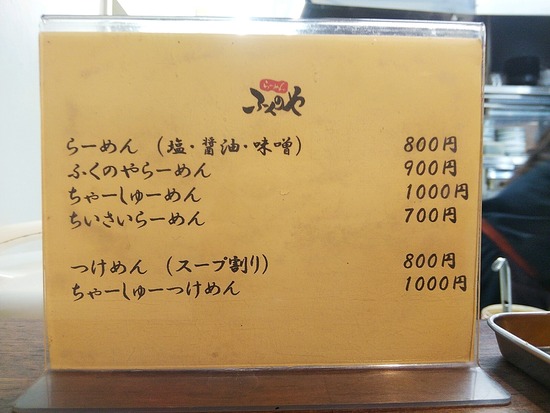 らーめん
ふくのや
らーめん (塩・醤油・味噌) 800円
ふくのやらーめん 900円
ちゃーしゅーめん 1000円
ちいさいらーめん 700円
つけめん (スープ割り) 800円
ちゃーしゅーつけめん 1000円